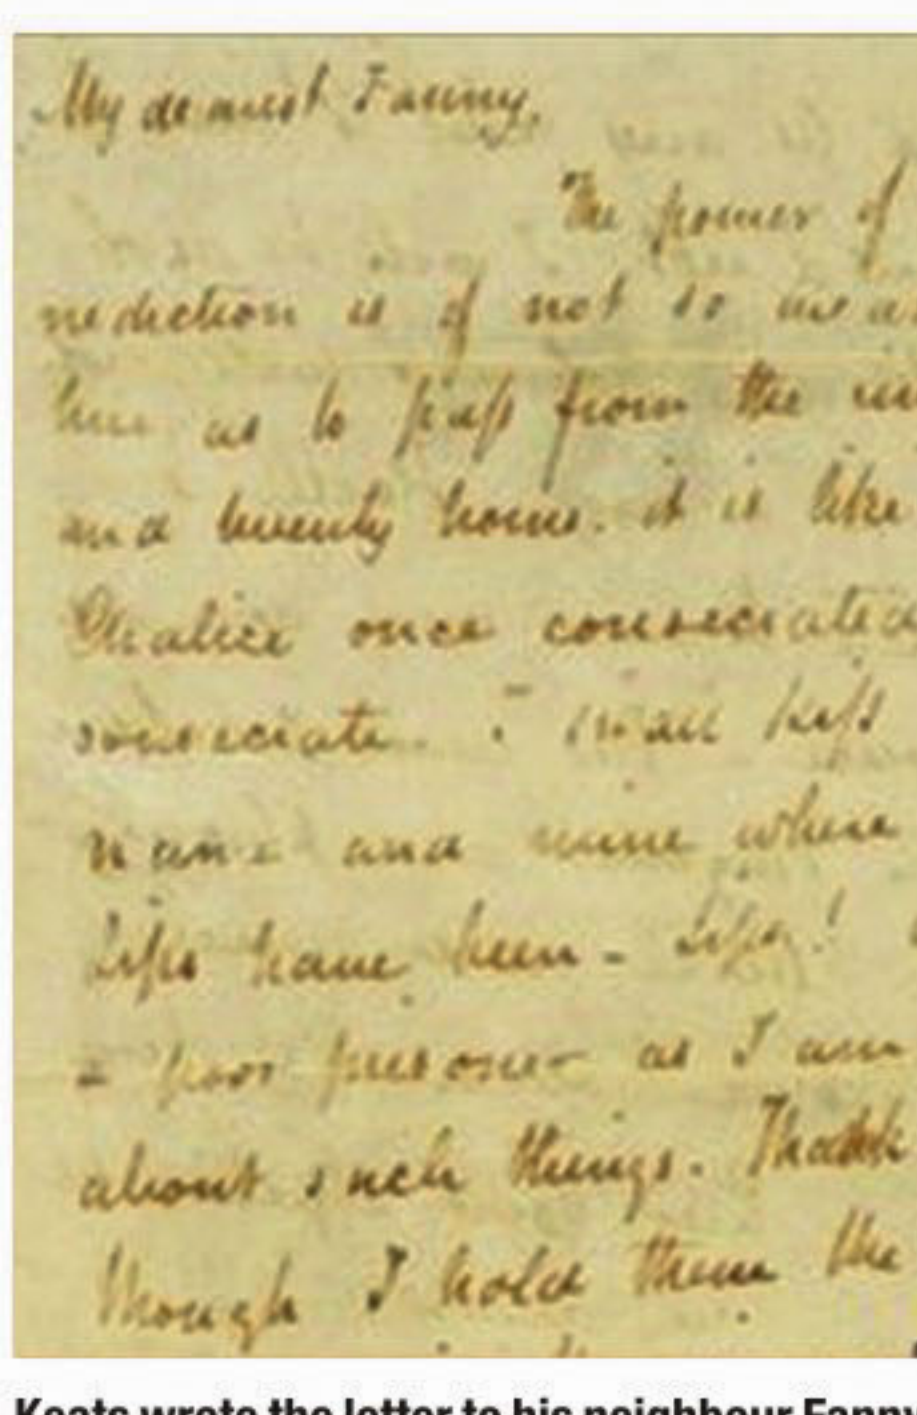 My dearest Fanny,
The power of
nediction is of not so
as to pass from the
and twenty hours. it is like
Chalice once consecrated
consecrate. I shall kiss
name and mine where
Lips have been - Lips!
a poor prisoner as I am
about such things. Thank
though I hold them the
Keats wrote the letter to his neighbour Fanny